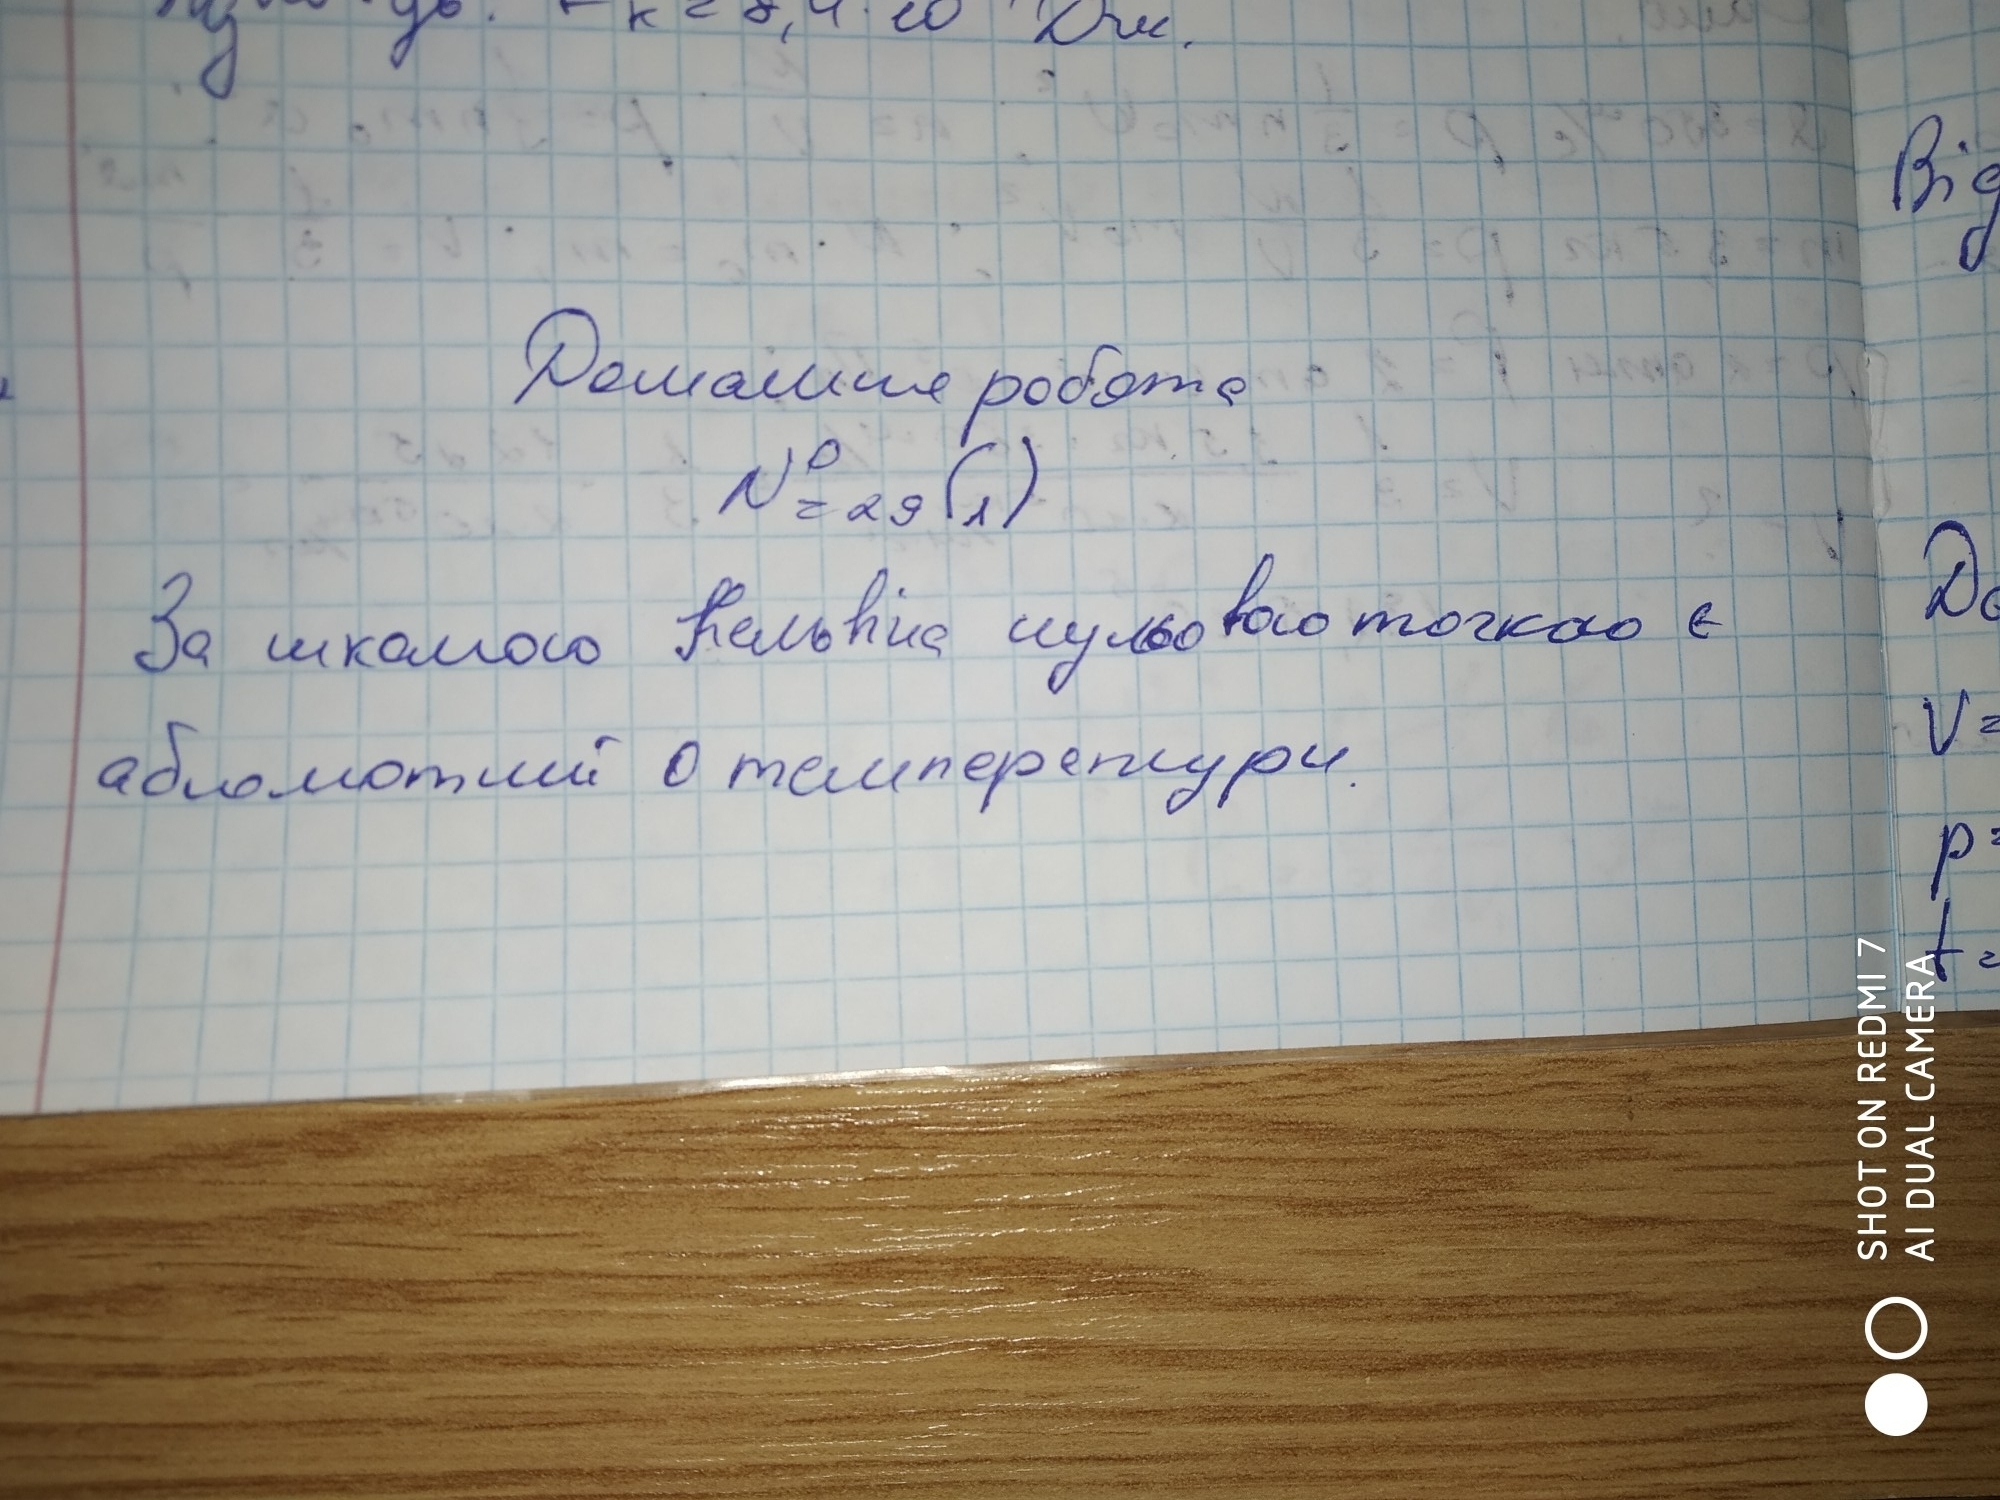 Eк = 8,4 · 10 Дж.
Домашня робота
№ 29 (1)
За шкалою Кельвіна нульовою точкою є
абсолютний 0 температури.
Від
V=
p=
t=
SHOT ON REDMI 7
AI DUAL CAMERA